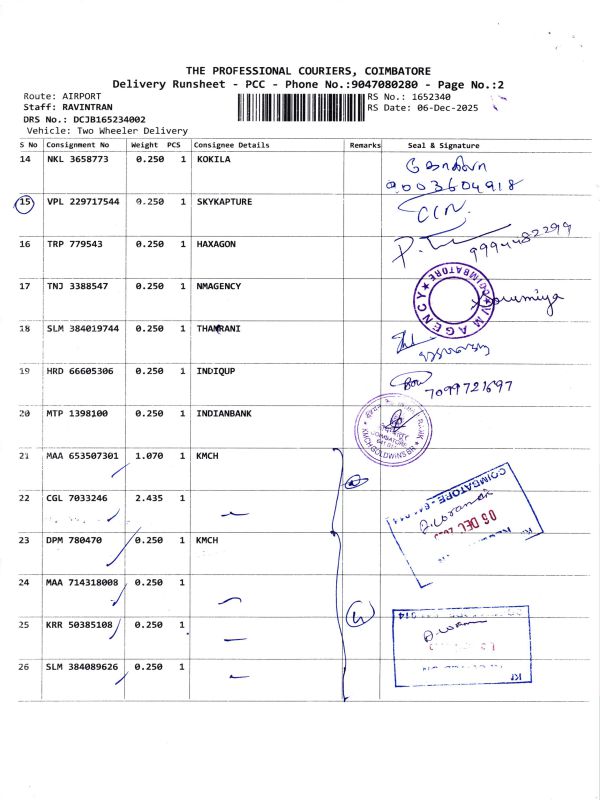 THE PROFESSIONAL COURIERS, COIMBATORE
Delivery Runsheet - PCC - Phone No.:9047080280 - Page No.:2
Route: AIRPORT
RS No.: 1652340
Staff: RAVINTRAN
RS Date: 06-Dec-2025
DRS No.: DCJB165234002
Vehicle: Two Wheeler Delivery
S No Consignment No Weight PCS Consignee Details Remarks Seal & Signature
14 NKL 3658773 0.250 1 KOKILA கோகிலா
9003604918
15 VPL 229717544 0.250 1 SKYKAPTURE
16 TRP 779543 0.250 1 HAXAGON 9994482299
17 TNJ 3388547 1 0.250 NMAGENCY
COIMBATORE VM AGENCY
18 SLM 384019744 0.250 1 THAMRANI
19 HRD 66605306 0.250 1 INDIQUP
7099721697
20 MTP 1398100 0.250 1 INDIANBANK
KMCH GOLDWINS BR
COIMBATORE
21 MAA 653507301 1.070 1 KMCH
22 CGL 7033246 2.435 1
COIMBATORE
23 DPM 780470 0.250 1 KMCH
24 MAA 714318008 0.250 1
25 KRR 50385108 0.250 1
26 SLM 384089626 0.250 1